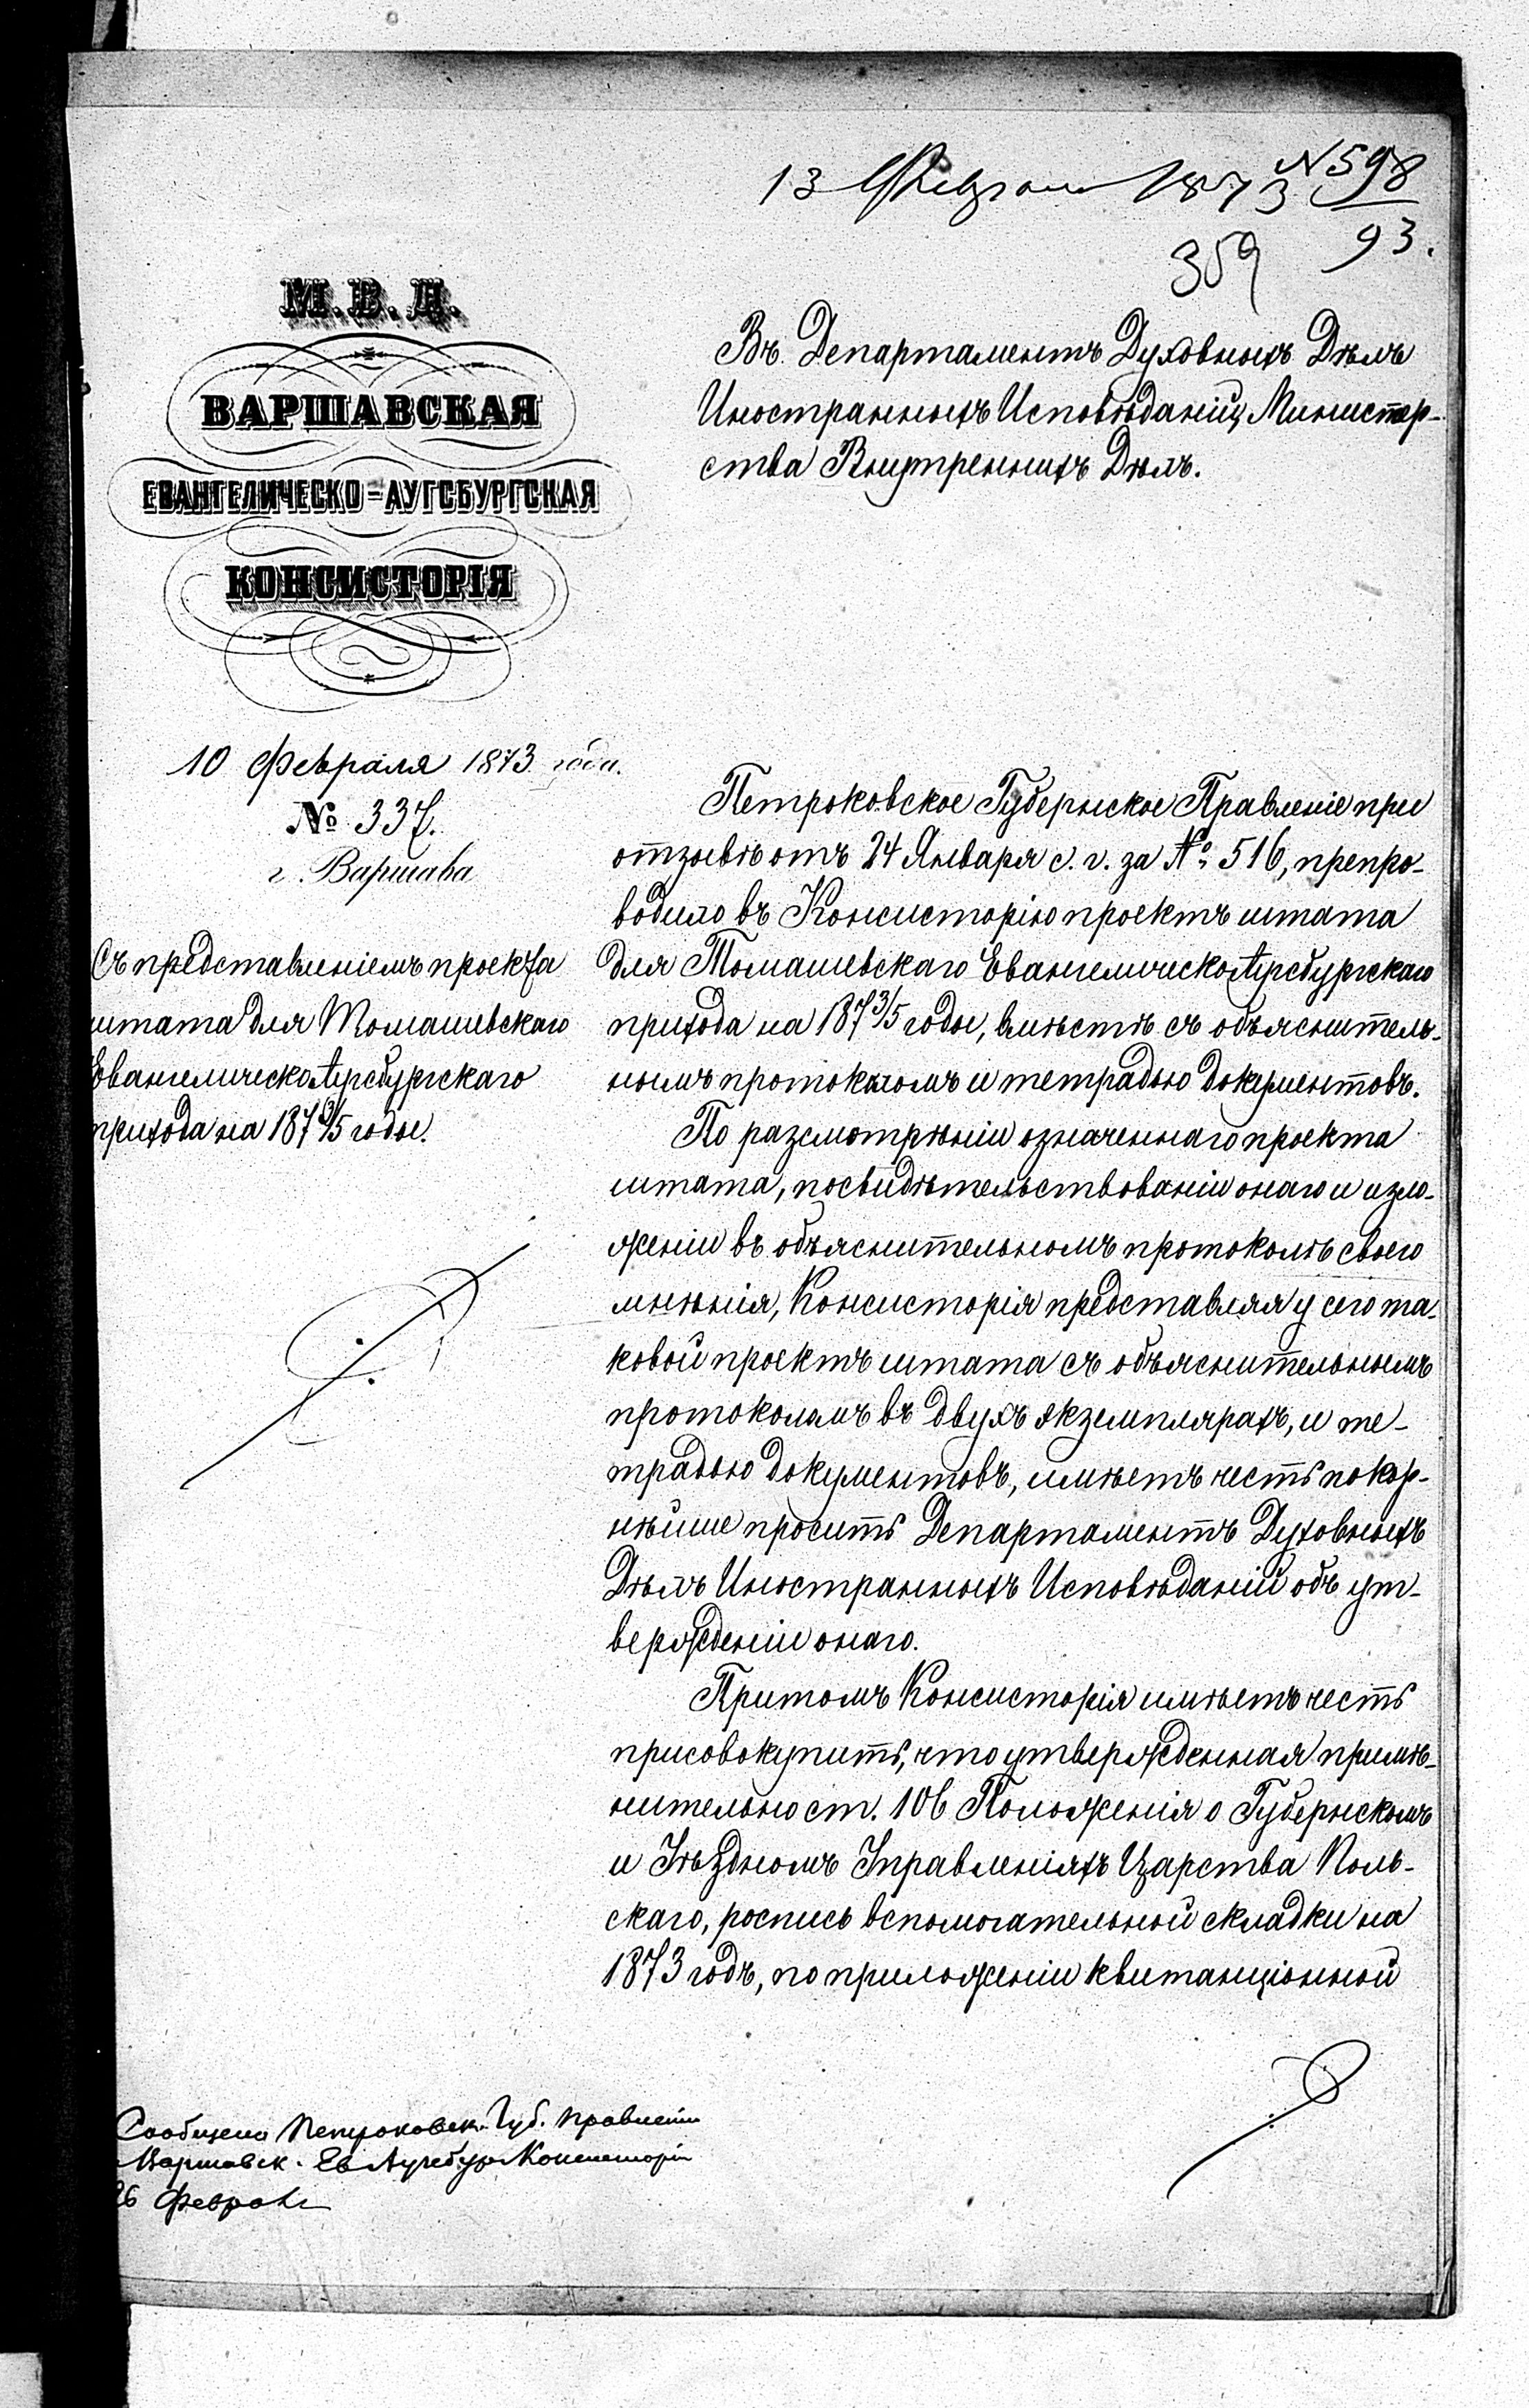 13 Февраля 1873 N 598
93.
359
М. В. Д.
ВАРШАВСКАЯ
ЕВАНГЕЛИЧЕСКО=АУГСБУРГСКАЯ
КОНСИСТОРІЯ
10 Февраля 1873 года.
№ 337.
г. Варшава
Съ представленіемъ проекта
штата для Томашевскаго
Евангелическо Аугсбургскаго
прихода на 187 3/5 годы.
Въ Департаментъ Духовныхъ Дѣлъ
Иностранныхъ Исповѣданій, Министер-
ства Внутреннихъ Дѣлъ.
Петроковское Губернское Правленіе при
отзывѣ отъ 24 Января с. г. за № 516, препро-
водило въ Консисторію проектъ штата
для Томашевскаго Евангелическо Аугсбургскаго
прихода на 187 3/5 годы, вмѣстѣ съ объяснитель-
нымъ протоколомъ и тетрадью документовъ.
По разсмотрѣніи означеннаго проекта
штата, посвидѣтельствованіи онаго и изло-
женіи въ объяснительномъ протоколѣ своего
мнѣнія, Консисторія представляя у сего та-
ковой проектъ штата съ объяснительнымъ
протоколомъ въ двухъ экземплярахъ, и те-
традью документовъ, имѣетъ честь покор-
нѣйше просить Департаментъ Духовныхъ
Дѣлъ Иностранныхъ Исповѣданій объ ут-
вержденіи онаго.
Притомъ Консисторія имѣетъ честь
присовокупить, что утвержденная примѣ-
нительно ст. 106 Положенія о Губернскомъ
и Уѣздномъ Управленіяхъ Царства Поль-
скаго, роспись вспомогательной складки на
1873 годъ, по приложеніи квитанціонной
Сообщено Петроковск. Губ. Правленію
Варшавск. Ев Аугсбург Консисторіи
26 Февраля